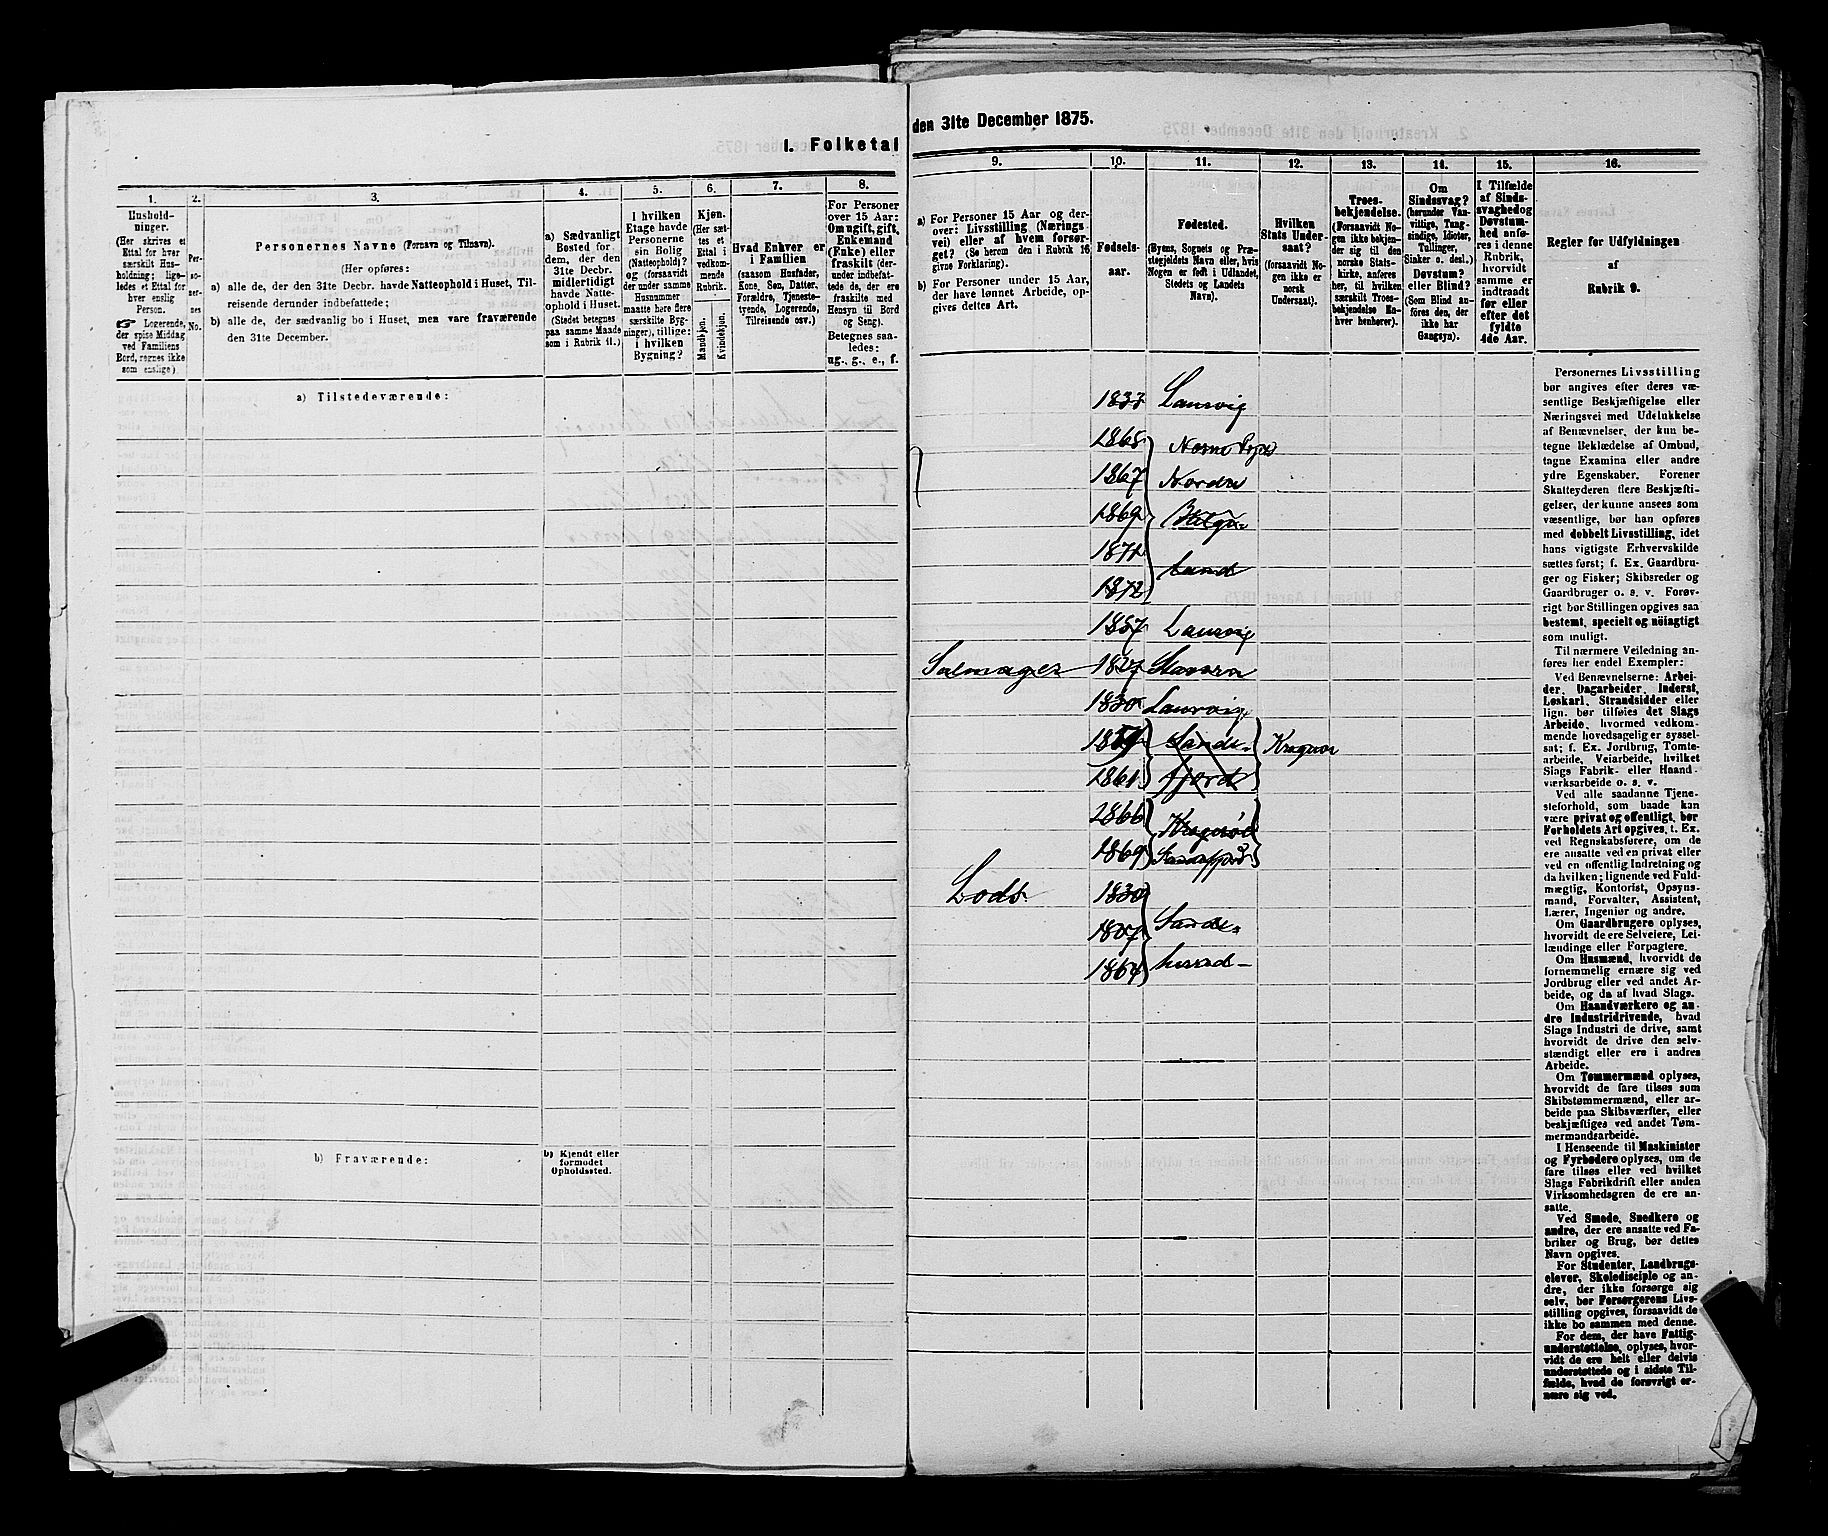 I. Folketal
1.
2.
3.
4.
5.
6.
7.
8.
Hushold-
ninger.
(Her skrives et
Ettal for hver
særskilt Hus-
holdning; lige-
ledes et Ettal for
hver enslig
Person.
☞ Logerende,
der spise Middag
ved Familiens
Bord, regnes ikke
som enslige).
Per-
so-
ner-
nes
No.
Personernes Navne (Fornavn og Tilnavn).
(Her opføres:
a) alle de, der den 31te Decbr. havde Natteophold i Huset, Til-
reisende derunder indbefattede;
b) alle de, der sædvanlig bo i Huset, men vare fraværende
den 31te December.
a) Sædvanligt
Bosted for
dem, der den
31te Decbr.
midlertidigt
havde Natte-
ophold i Huset.
(Stedet betegnes
paa samme Maade
som i Rubrik 11.)
I hvilken
Etage havde
Personerne
sin Bolig
(Natteophold)?
og (forsaavidt
der under samme
Husnummer
maatte høre flere
særskilte Byg-
ninger), tillige:
i hvilken
Bygning?
Kjøn.
(Her sæt-
tes et
Ettal i
vedkom-
mende
Rubrik.
Mandkjøn.
Kvindekjøn.
Hvad Enhver er
i Familien
(saasom Husfader,
Kone, Søn, Datter,
Forældre, Tjeneste-
tyende, Logerende,
Tilreisende osv.)
For Personer
over 15 Aar:
Om ugift, gift,
Enkemand
(Enke) eller
fraskilt (der-
under indbefat-
tede de, der ere
fraskilte med
Hensyn til Bord
og Seng).
Betegnes saa-
ledes:
ug., g., e., f.
a) Tilstedeværende:
b) Fraværende:
b) Kjendt eller
formodet
Opholdssted.
den 31te December 1875.
9.
10.
11.
12.
13.
14.
15.
16.
a) For Personer 15 Aar og der-
over: Livsstilling (Nærings-
vei) eller af hvem forsør-
get? (Se herom den i Rubrik 16
givne Forklaring).
b) For Personer under 15 Aar,
der have lønnet Arbeide, op-
gives dettes Art.
Fødsels-
aar.
Fødested.
(Byens, Sognets og Præ-
stegjeldets Navn, eller, hvis
Nogen er født i Udlandet,
Stedets og Landets
Navn).
Hvilken
Stats Under-
saat?
(forsaavidt No-
gen ikke er
norsk
Undersaat).
Troes-
bekjendelse.
(Forsaavidt No-
gen ikke bekjen-
der sig til den
norske Stats-
kirke, anføres
her, til hvilken
særskilt Troes-
bekjendelse En-
hver henhører).
Om
Sindssvag?
(herunder Van-
vittige, Tung-
sindige, Idioter,
Tullinger,
Sinker o. desl.)
Døvstum?
eller Blind?
(Som Blind an-
føres den, der
ikke har
Gangsyn).
I Tilfælde
af Sinds-
svaghed og
Døvstum-
hed anfø-
res i denne
Rubrik,
hvorvidt
samme er
indtraadt
før eller
efter det
fyldte
4de Aar.
Regler for Udfyldningen
af
Rubrik 9.
1833 Laurvig
1865
1867
1869
1871
1872
1857 Laurvig
Salmager 1827 Stavern
1830 Laurvig
1859 Sande- Kragerø
1861 fjord
1866 Kragerøe
1869 Sandefjord
Lods 1830
1827 Sande-
1864 herred
Personernes Livsstilling
bør angives efter deres væ-
sentlige Beskjæftigelse eller
Næringsvei med Udelukkelse
af Benævnelser, der kun be-
tegne Beklædelse af Ombud,
tagne Examina eller andre
ydre Egenskaber. Forener
Skatteyderen flere Beskjæfti-
gelser, der kunne ansees som
væsentlige, bør han opføres
med dobbelt Livsstilling, idet
hans vigtigste Erhvervskilde
sættes først; f. Ex. Gaardbru-
ger og Fisker; Skibsreder og
Gaardbruger o. s. v. Forøv-
rigt bør Stillingen opgives saa
bestemt, specielt og nöiagtigt
som muligt.
Til nærmere Veiledning an-
føres her endel Exempler:
Ved Benævnelserne: Arbei-
der, Dagarbeider, Inderst,
Løskarl, Strandsidder eller
lign. bør tilføies det Slags
Arbeide, hvormed vedkom-
mende hovedsagelig er syssel-
sat; f. Ex. Jordbrug, Tomte-
arbeide, Veiarbeide, hvilket
Slags Fabrik- eller Haand-
værksarbeide o. s. v.
Ved alle saadanne Tjene-
steforhold, som baade kan
være privat og offentligt, bør
Forholdets Art opgives, t. Ex.
ved Regnskabsførere, om de
ere ansatte ved en privat eller
ved en offentlig Indretning og
da hvilken; lignende ved Fuld-
mægtig, Kontorist, Opsyns-
mand, Forvalter, Assistent,
Lærer, Ingeniør og andre.
Om Gaardbrugere oplyses,
hvorvidt de ere Selveiere, Lei-
lændinge eller Forpagtere.
Om Husmænd, hvorvidt de
fornemmelig ernære sig ved
Jordbrug eller ved andet Ar-
beide, og da af hvad Slags.
Om Haandværkere og an-
dre Industridrivende, hvad
Slags Industri de drive, samt
hvorvidt de drive den selv-
stændigt eller ere i andres
Arbeide.
Om Tømmermænd oplyses,
hvorvidt de fare tilsøs som
Skibstømmermænd, eller ar-
beide paa Skibsværfter, eller
beskjæftiges ved andet Tøm-
mermandsarbeide.
I Henseende til Maskinister
og Fyrbødere oplyses, om de
fare tilsøs eller ved hvilket
Slags Fabrikdrift eller anden
Virksomhedsgren de ere an-
satte.
Ved Smede, Snedkere og
andre, der ere ansatte ved Fa-
briker og Brug, bør dettes
Navn opgives.
For Studenter, Landbrugs-
elever, Skoledisciple og an-
dre, der ikke forsørge sig
selv, bør Forsørgerens Livs-
stilling opgives, forsaavidt de
ikke bo sammen med denne.
For dem, der have Fattig-
understøttelse, oplyses, hvor-
vidt de ere helt eller delvis
understøttede og i sidste Til-
fælde, hvad de forøvrigt er-
nære sig ved.